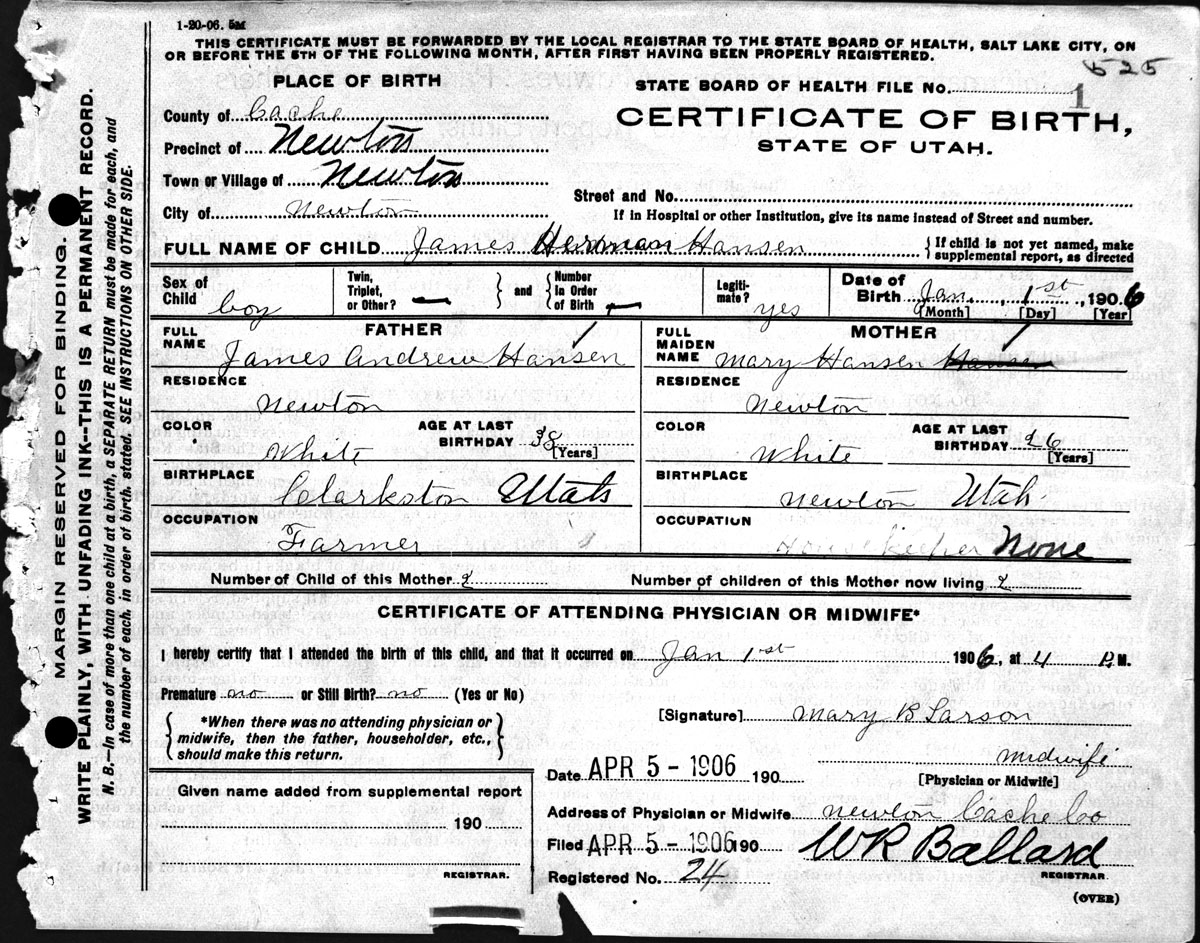 1-20-06. 5M
THIS CERTIFICATE MUST BE FORWARDED BY THE LOCAL REGISTRAR TO THE STATE BOARD OF HEALTH, SALT LAKE CITY, ON
OR BEFORE THE 5TH OF THE FOLLOWING MONTH, AFTER FIRST HAVING BEEN PROPERLY REGISTERED.
525
PLACE OF BIRTH
STATE BOARD OF HEALTH FILE NO. 1
County of Cache
CERTIFICATE OF BIRTH,
STATE OF UTAH.
Precinct of Newton
Town or Village of Newton
Street and No.
City of Newton
If in Hospital or other Institution, give its name instead of Street and number.
FULL NAME OF CHILD James Herman Hansen
{If child is not yet named, make
supplemental report, as directed
Sex of Child boy
Twin, Triplet, or Other? —
and
Number In Order of Birth —
Legiti-mate? yes
Date of Birth Jan. 1st, 1906
[Month] [Day] [Year]
FATHER
FULL NAME James Andrew Hansen
MOTHER
FULL MAIDEN NAME Mary Hansen Hansen
RESIDENCE Newton
RESIDENCE Newton
COLOR White
AGE AT LAST BIRTHDAY 38 [Years]
COLOR White
AGE AT LAST BIRTHDAY 26 [Years]
BIRTHPLACE Clarkston Utah
BIRTHPLACE Newton Utah
OCCUPATION Farmer
OCCUPATION Housekeeper None
Number of Child of this Mother 2
Number of children of this Mother now living 2
CERTIFICATE OF ATTENDING PHYSICIAN OR MIDWIFE*
I hereby certify that I attended the birth of this child, and that it occurred on Jan 1st 1906, at 4 P.M.
Premature no or Still Birth? no (Yes or No)
{*When there was no attending physician or
midwife, then the father, householder, etc.,
should make this return.}
[Signature] Mary B Larson
midwife
[Physician or Midwife]
Date APR 5 - 1906 190
Given name added from supplemental report
190
REGISTRAR.
Address of Physician or Midwife Newton Cache Co
Filed APR 5 - 1906 190
WR Ballard
REGISTRAR.
Registered No. 24
(OVER)
MARGIN RESERVED FOR BINDING.
WRITE PLAINLY, WITH UNFADING INK--THIS IS A PERMANENT RECORD.
N. B.—In case of more than one child at a birth, a SEPARATE RETURN must be made for each, and
the number of each, in order of birth, stated. SEE INSTRUCTIONS ON OTHER SIDE.